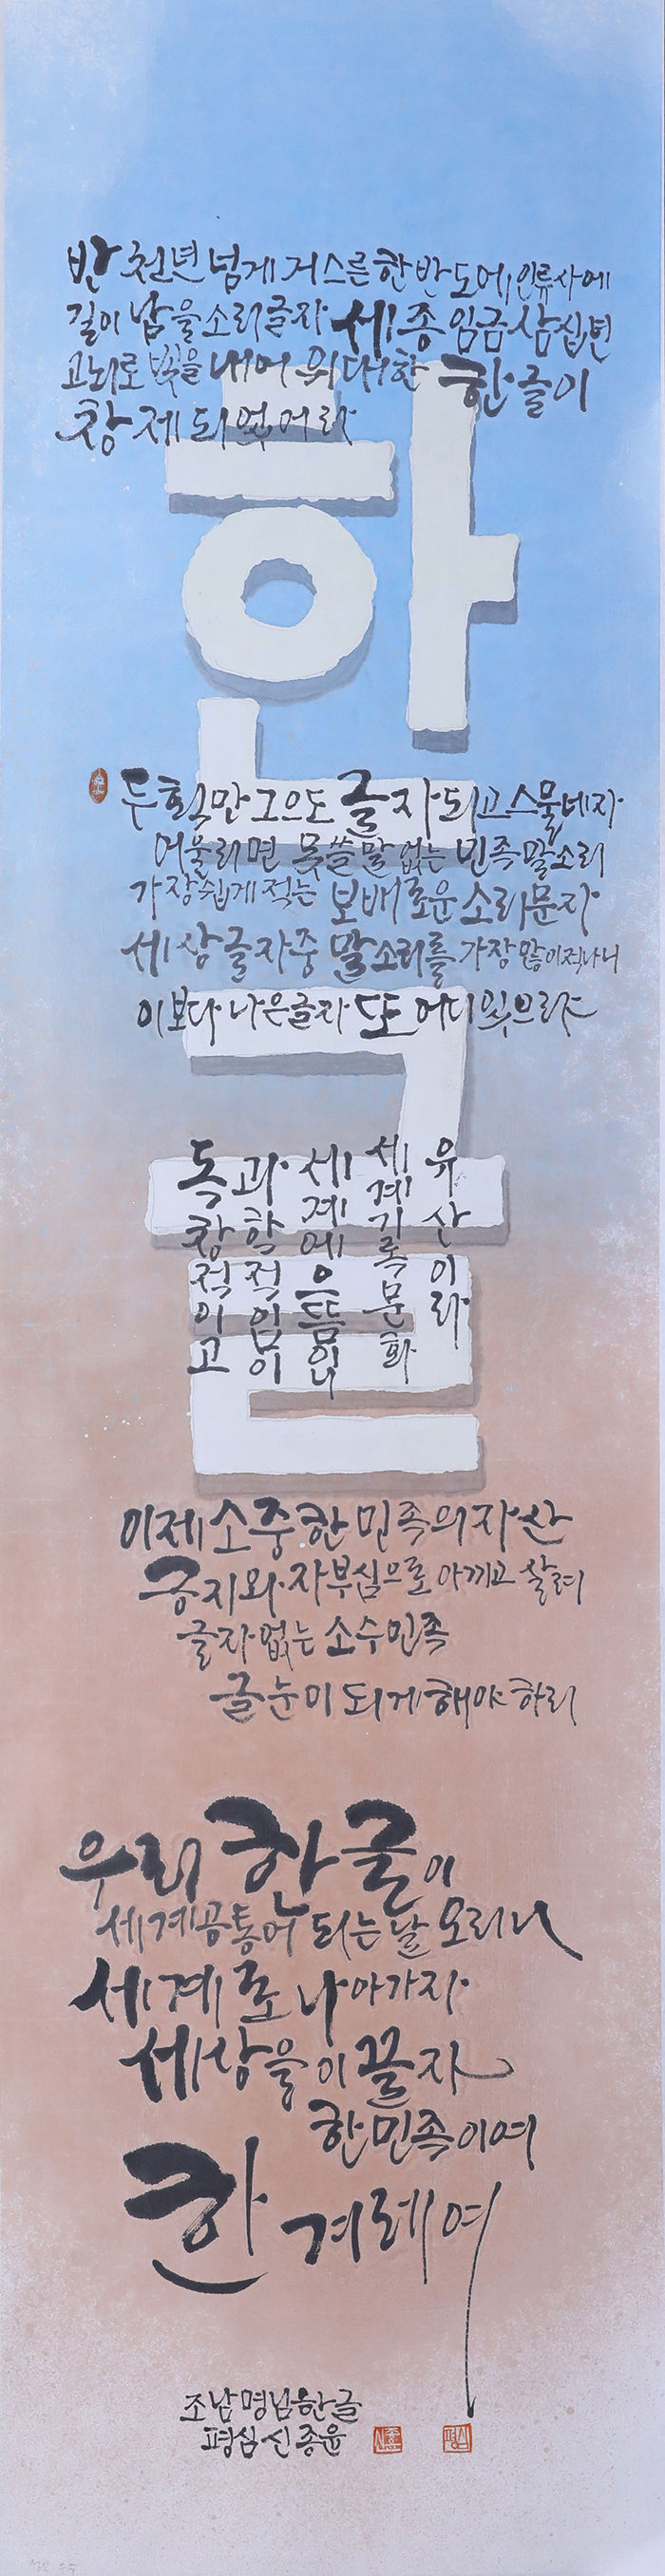 반 천년 넘게 거스른 한반도에 인류사에
길이 남을 소리글자 세종임금 삼십년
고뇌로 빛을 내어 위대한 한글이
창제되었어라
한글
두 획만 그으도 글자되고 스물네자
어울리면 못쓸말 없는 민족말소리
가장쉽게 적는 보배로운 소리문자
세상글자중 말소리를 가장 많이 적나니
이보다 나은글자 또 어디 있으랴
독창적이고
과학적임이
세계에 으뜸이니
세계기록문화
유산이라
이제 소중한 민족의 자산
긍지와 자부심으로 아끼고 살려
글자없는 소수민족
글눈이 되게 해야 하리
우리 한글이
세계공통어 되는 날 오리니
세계로 나아가자
세상을 이끌자
한민족이여
한겨레여
조남명님 한글
평심 신종윤